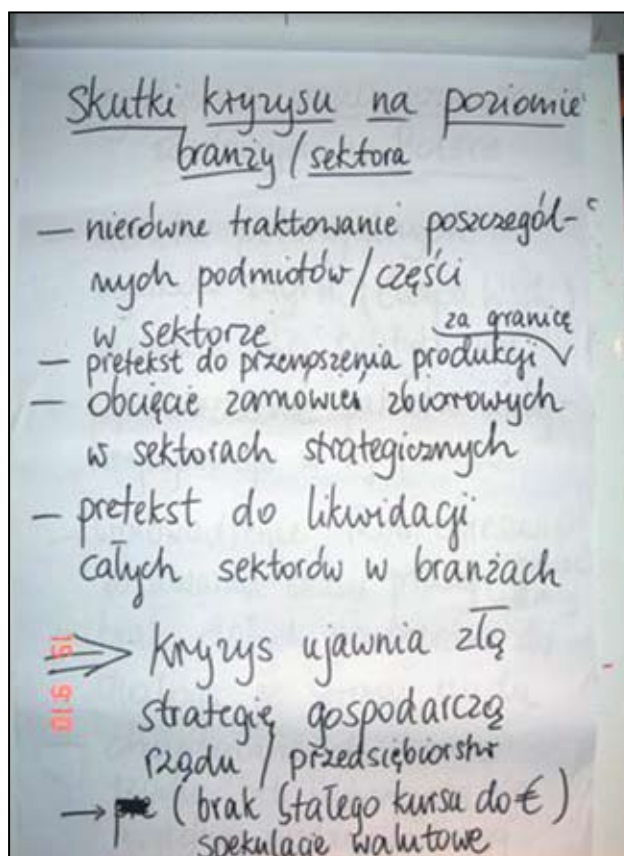 Skutki kryzysu na poziomie
branży / sektora
— nierówne traktowanie poszczegól-
nych podmiotów / części
w sektorze
za granicę
— pretekst do przenoszenia produkcji √
— obcięcie zamówień zbiorowych
w sektorach strategicznych
— pretekst do likwidacji
całych sektorów w branżach
⇒ kryzys ujawnia złą
strategię gospodarczą
rządu / przedsiębiorstw
→ (brak stałego kursu do €)
spekulacje walutowe
19. 9:10